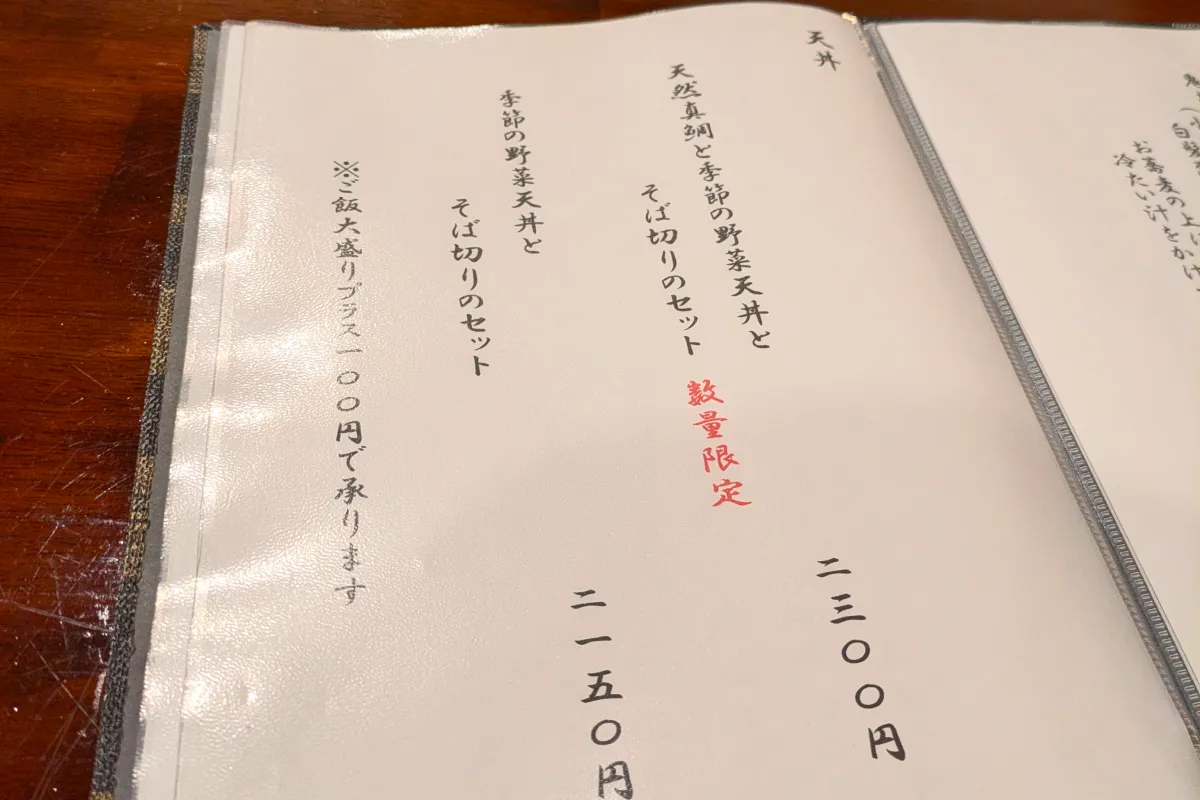 白
お蕎麦の上に
冷たい汁をかけ
天丼
天然真鯛と季節の野菜天丼と
そば切りのセット 数量限定
二三〇〇円
季節の野菜天丼と
そば切りのセット
二一五〇円
※ご飯大盛りプラス一〇〇円で承ります